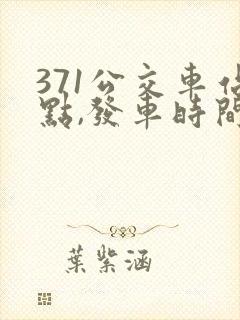 371公交車佔
點,發車時間
葉紫涵